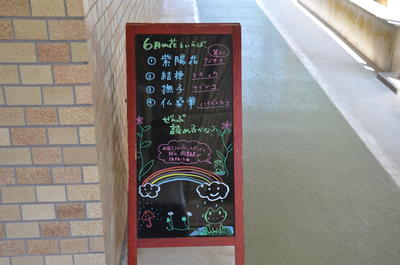 6月の花といえば
① 紫陽花 アジサイ
② 桔梗 キキョウ
③ 撫子 ナデシコ
④ 仏桑華 ハイビスカス
ぜんぶ
読めるかな?